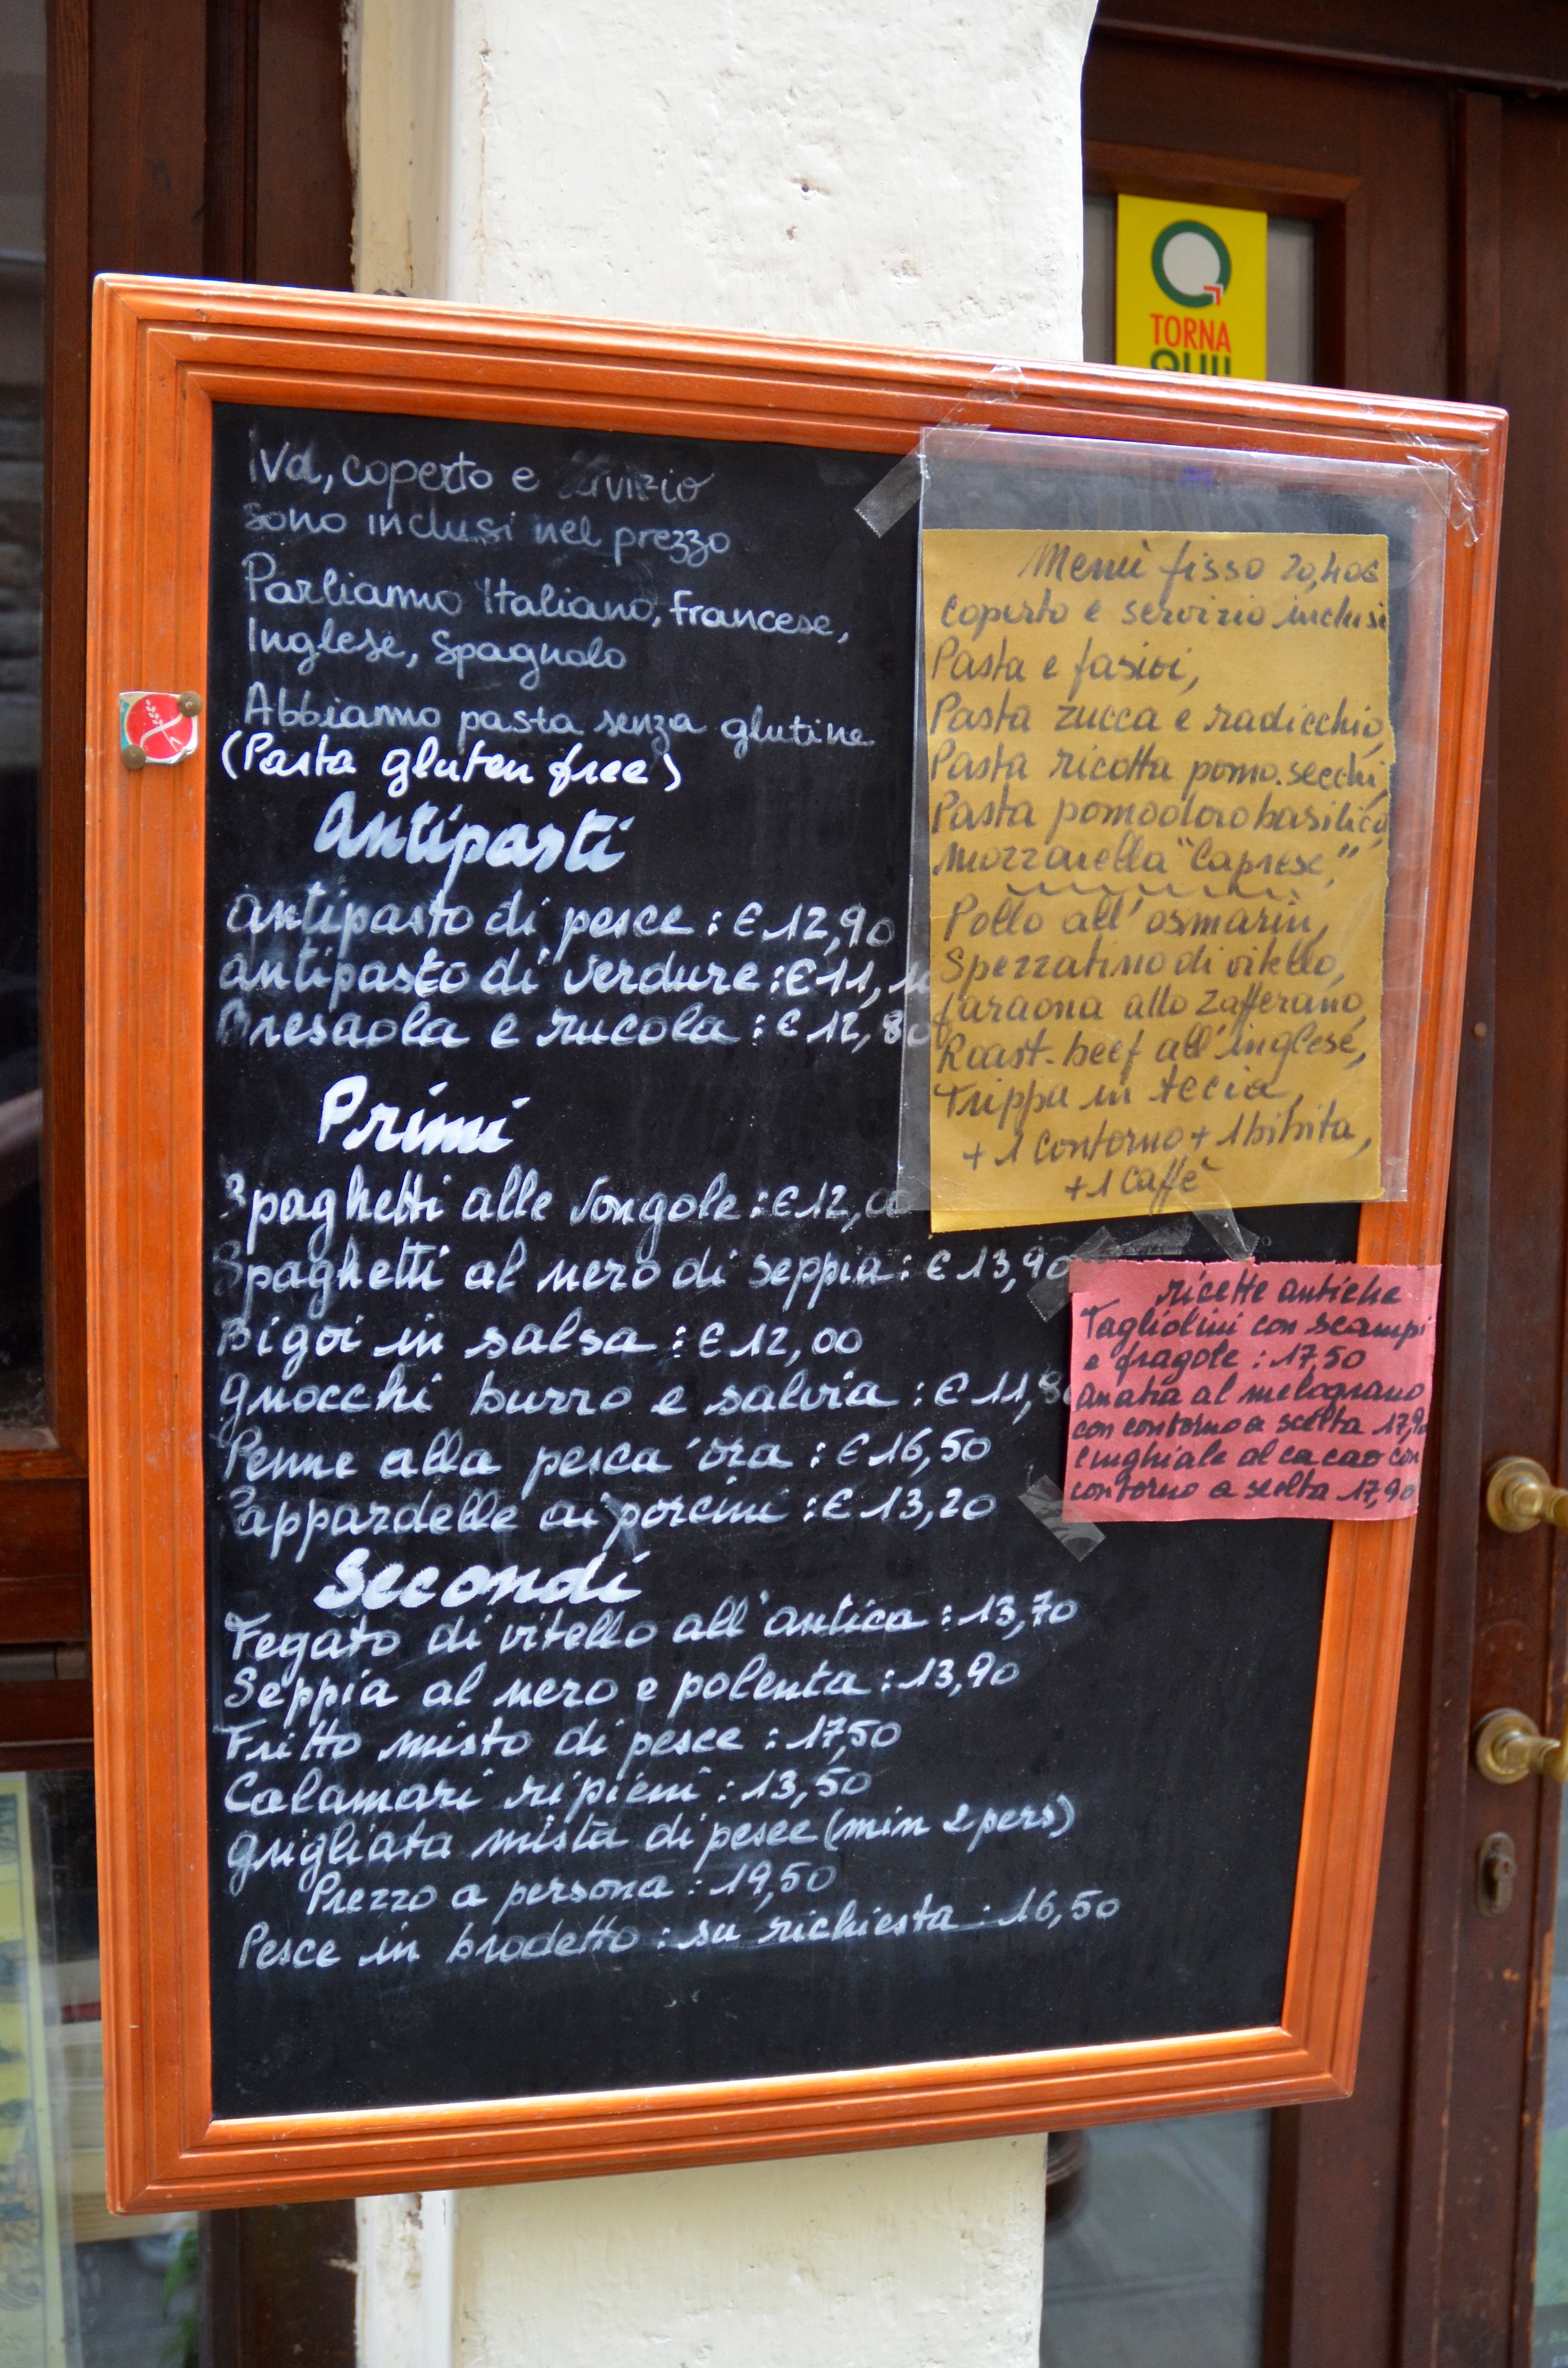 Iva, coperto e servizio
sono inclusi nel prezzo
Parliamo Italiano, Francese,
Inglese, Spagnolo
Abbiamo pasta senza glutine
(Pasta gluten free)
Antipasti
antipasto di pesce : € 12,90
antipasto di verdure : € 11,
Bresaola e rucola : € 12,80
Primi
Spaghetti alle Vongole : € 12,00
Spaghetti al nero di seppia : € 13,90
Bigoi in salsa : € 12,00
gnocchi burro e salvia : € 11,8
Penne alla pesca'ora : € 16,50
Pappardelle ai porcini : € 13,20
Secondi
Fegato di vitello all'antica : 13,70
Seppia al nero e polenta : 13,90
Fritto misto di pesce : 17,50
Calamari ripieni : 13,50
grigliata mista di pesce (min 2 pers)
Prezzo a persona : 19,50
Pesce in brodetto : su richiesta : 16,50
TORNA
QUI!
Menù fisso 20,40€
coperto e servizio inclusi
Pasta e fasioi,
Pasta zucca e radicchio,
Pasta ricotta pomo.secchi,
Pasta pomodoro basilico,
Mozzarella "Caprese",
Pollo all'osmarin,
Spezzatino di vitello,
faraona allo zafferano,
Roast-beef all'inglese,
Trippa in tecia,
+ 1 contorno + 1 bibita,
+ 1 caffè
ricette antiche
Tagliolini con scampi
e fragole : 17,50
anatra al melograno
con contorno a scelta 17,90
Cinghiale al cacao con
contorno a scelta 17,90